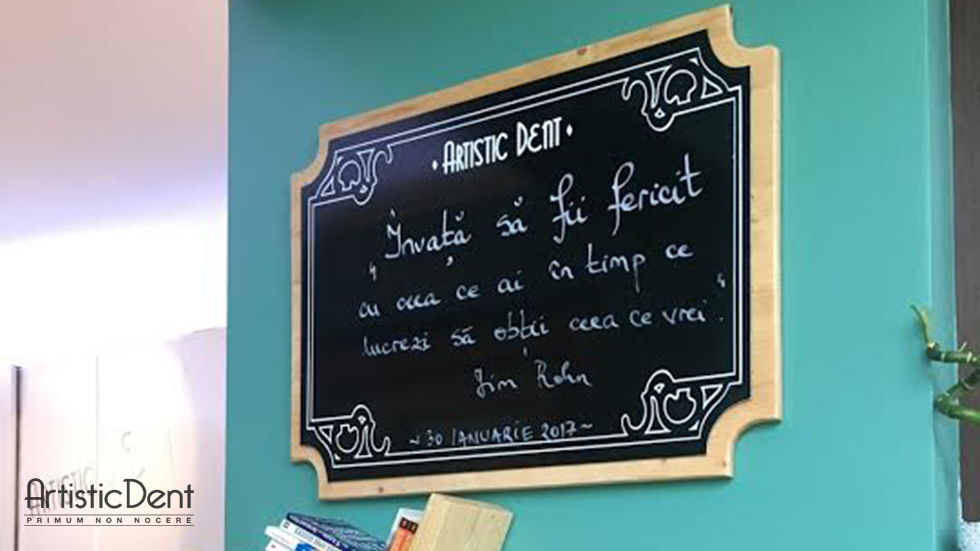 • ARTISTIC DENT •
„Învață să fii fericit
cu ceea ce ai în timp ce
lucrezi să obții ceea ce vrei".
Jim Rohn
~ 30 IANUARIE 2017 ~
ARTISTIC
ArtisticDent
PRIMUM NON NOCERE